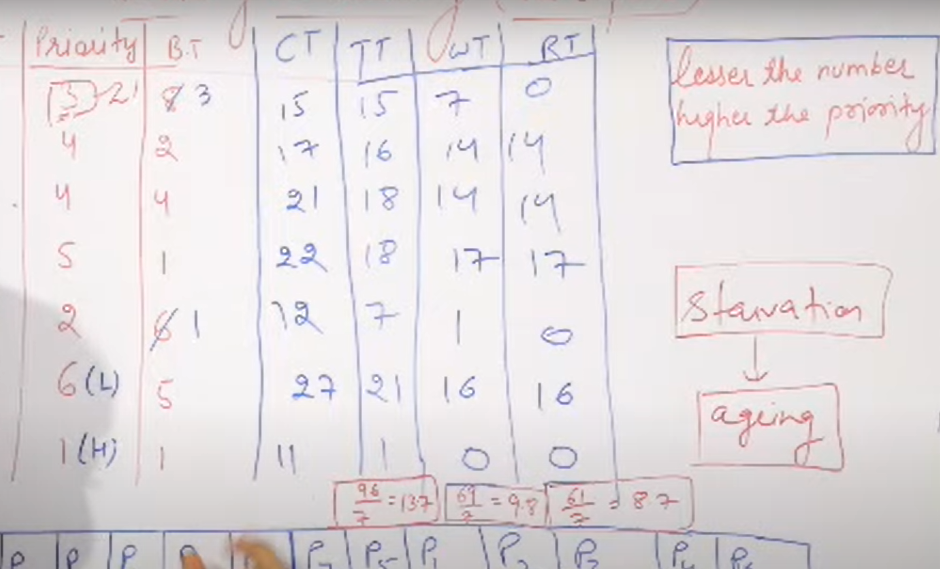 Priority B.T CT TT WT RT
(3) 2 8 3 15 15 7 0
4 2 17 16 14 14
4 4 21 18 14 14
5 1 22 18 17 17
2 6 1 12 7 1 0
6(L) 5 27 21 16 16
1(H) 1 11 1 0 0
96/7 = 13.7 69/7 = 9.8 61/7 = 8.7
lesser the number
higher the priority
Starvation
ageing
P5 P1